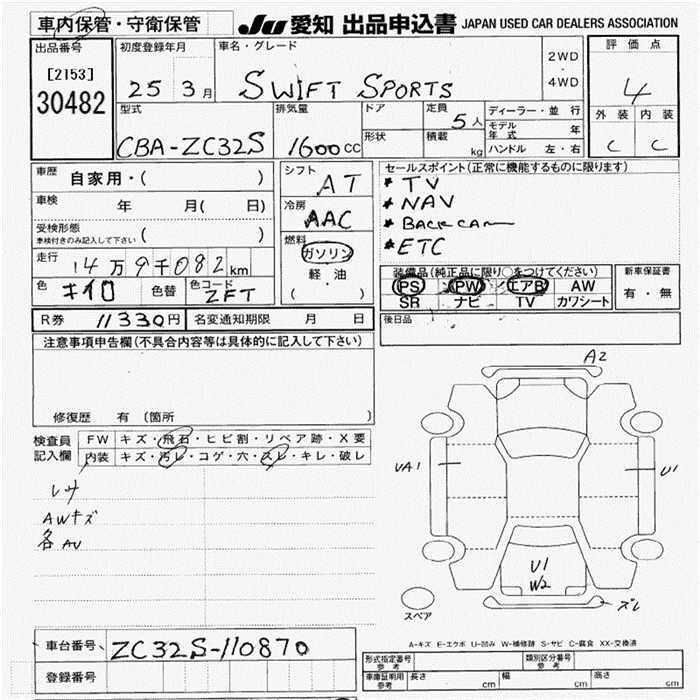 車内保管・守衛保管
JU 愛知 出品申込書 JAPAN USED CAR DEALERS ASSOCIATION
出品番号
[2153]
30482
初度登録年月
25 3月
車名・グレード
SWIFT SPORTS
2WD
・
4WD
評価点
4
外装 内装
C C
型式
CBA-ZC32S
排気量
1600cc
ドア
形状
定員
5人
積載
kg
ディーラー・並行
モデル年式 年
ハンドル 左・右
車歴 自家用・( )
車検 年 月( 日)
受検形態
車検付きのみ記入して下さい ( )
走行 14万9千082km
色 キイロ 色替 色コード ZFT
シフト
AT
冷房
AAC
燃料
ガソリン
軽・油
( )
セールスポイント(正常に機能するものに限ります)
* TV
* NAV
* BACK CAM
* ETC
装備品(純正品に限り○をつけてください)
PS PW エアB AW
SR ナビ TV カワシート
新車保証書
有・無
R券 11330円 名変通知期限 月 日
後日品
注意事項申告欄(不具合内容等は具体的に記入して下さい)
修復歴 有 〔箇所 〕
検査員記入欄
FW キズ・飛石・ヒビ割・リペア跡・X要
内装 キズ・汚レ・コゲ・穴・スレ・キレ・破レ
AWキズ
各AU
A2
UA1
U1
U1
W2
ズレ
スペア
A-キズ E-エクボ U-凹み W-補修跡 S-サビ C-腐食 XX-交換済
車台番号 ZC32S-110870
登録番号
形式指定番号 参考
類別区分番号 参考
車庫証明用 参考 長さ cm 幅 cm 高さ cm